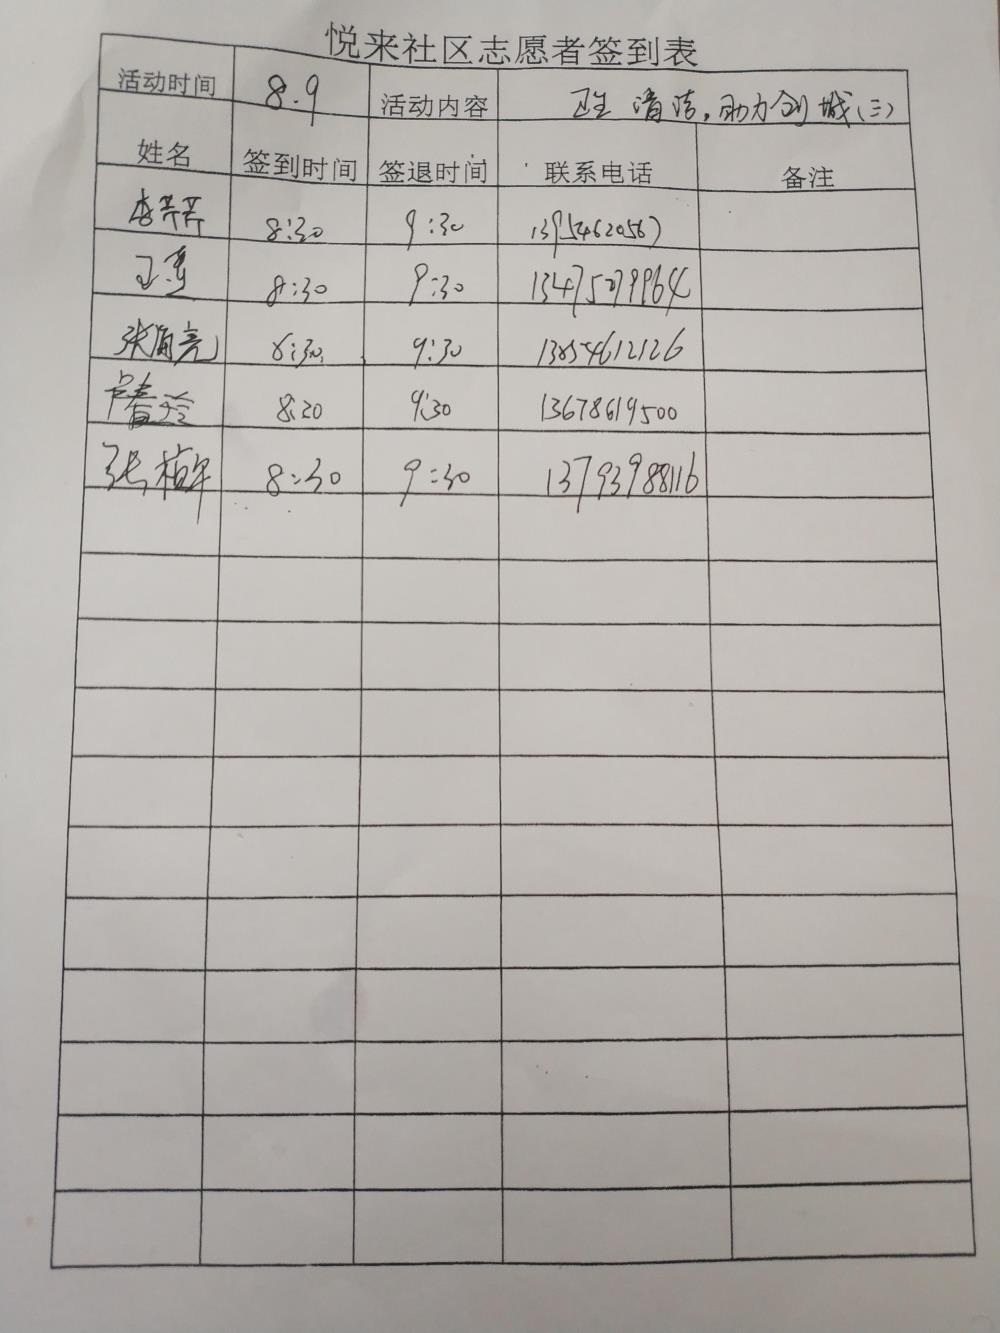 悦来社区志愿者签到表
活动时间 8.9 活动内容 卫生清洁,助力创城(三)
姓名 签到时间 签退时间 联系电话 备注
李芹芹 8:30 9:30 13954620567
8:30 9:30 13475299964
8:30 9:30 13854612126
卢春玲 8:20 9:30 13678619500
8:30 9:30 13793988116